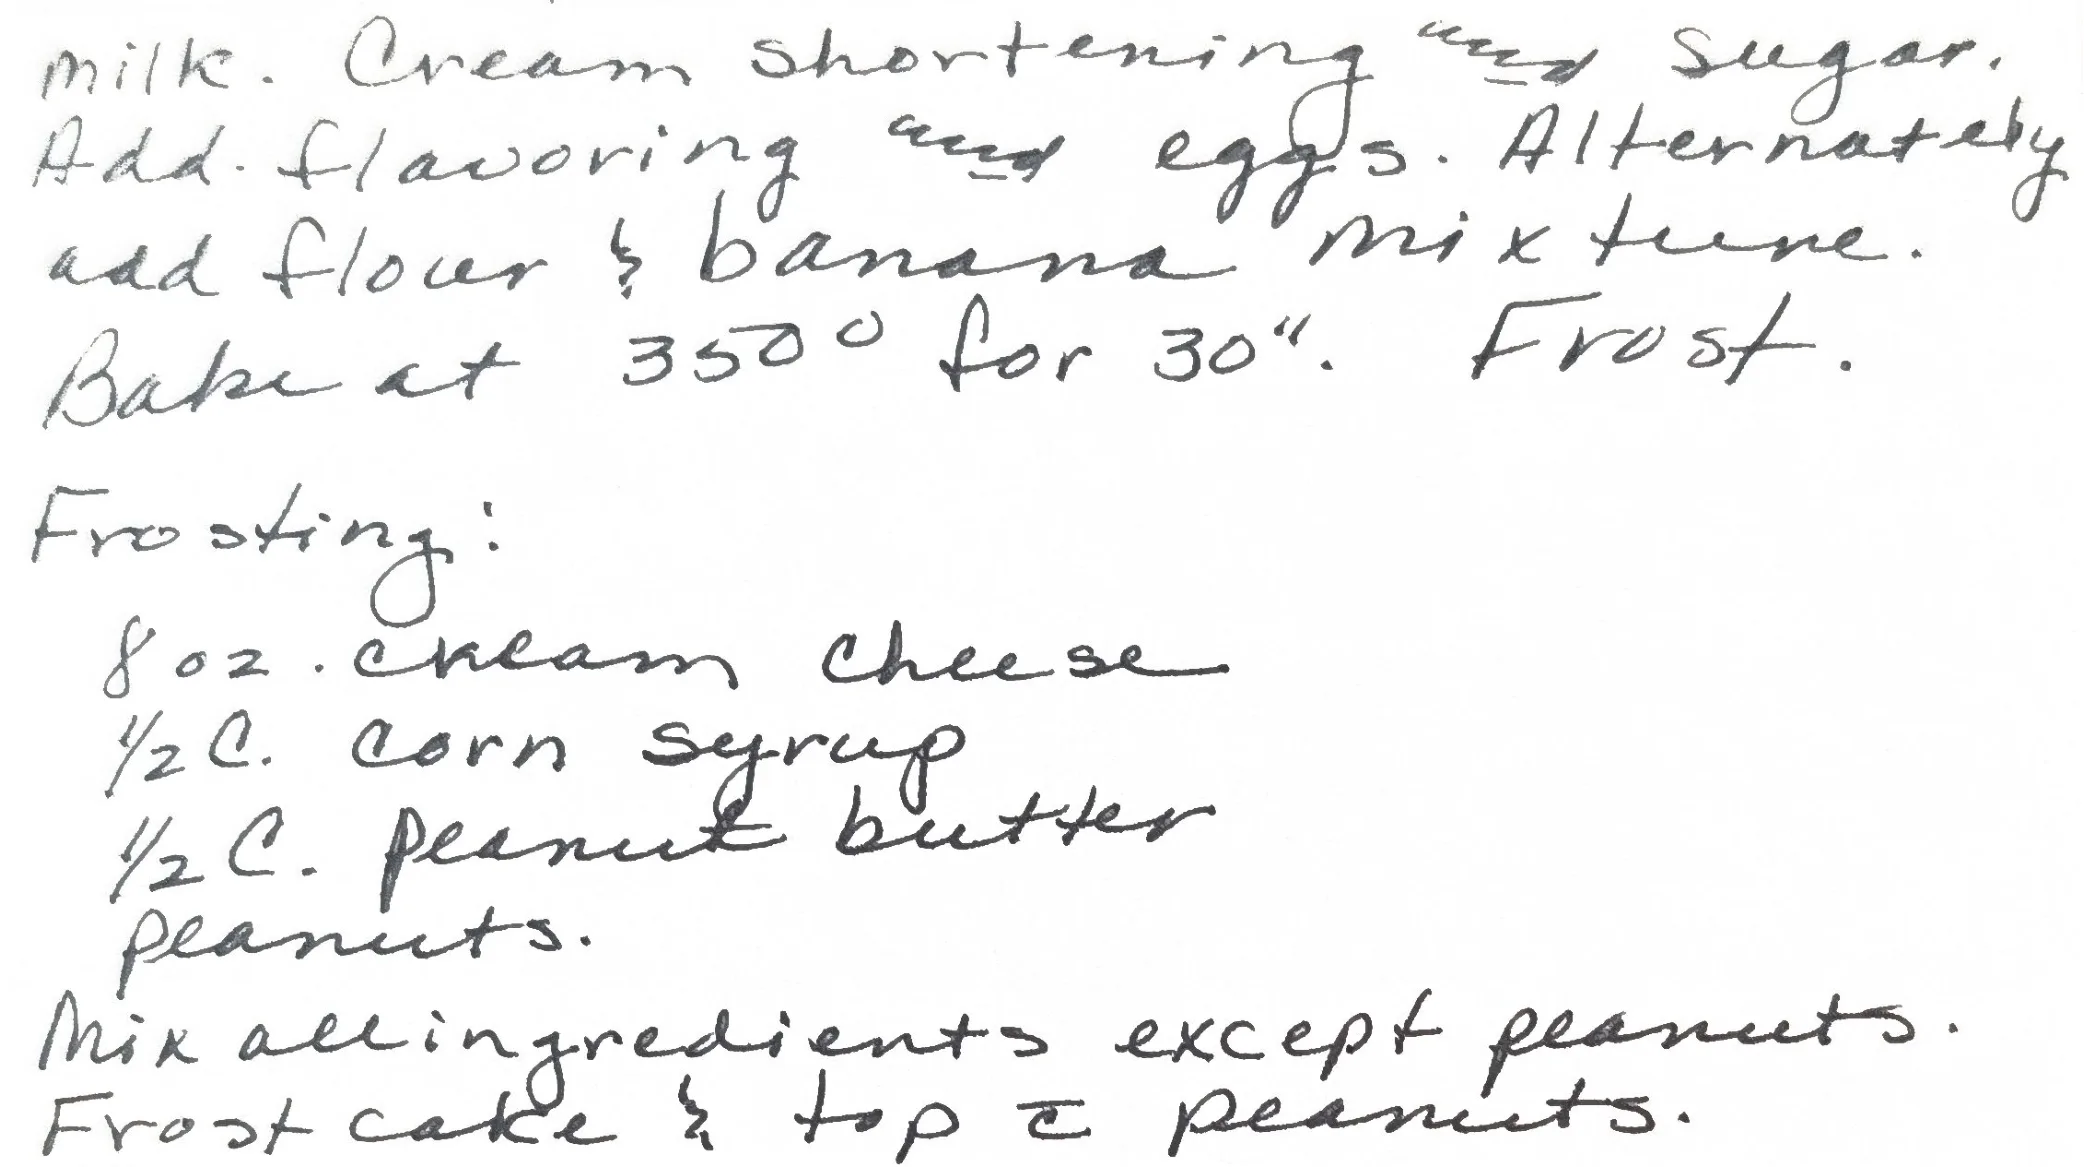 milk. Cream shortening and sugar.
Add flavoring and eggs. Alternately
add flour & banana mixture.
Bake at 350° for 30". Frost.
Frosting:
8 oz. cream cheese
1/2 C. corn syrup
1/2 C. peanut butter
peanuts.
Mix all ingredients except peanuts.
Frost cake & top c̄ peanuts.